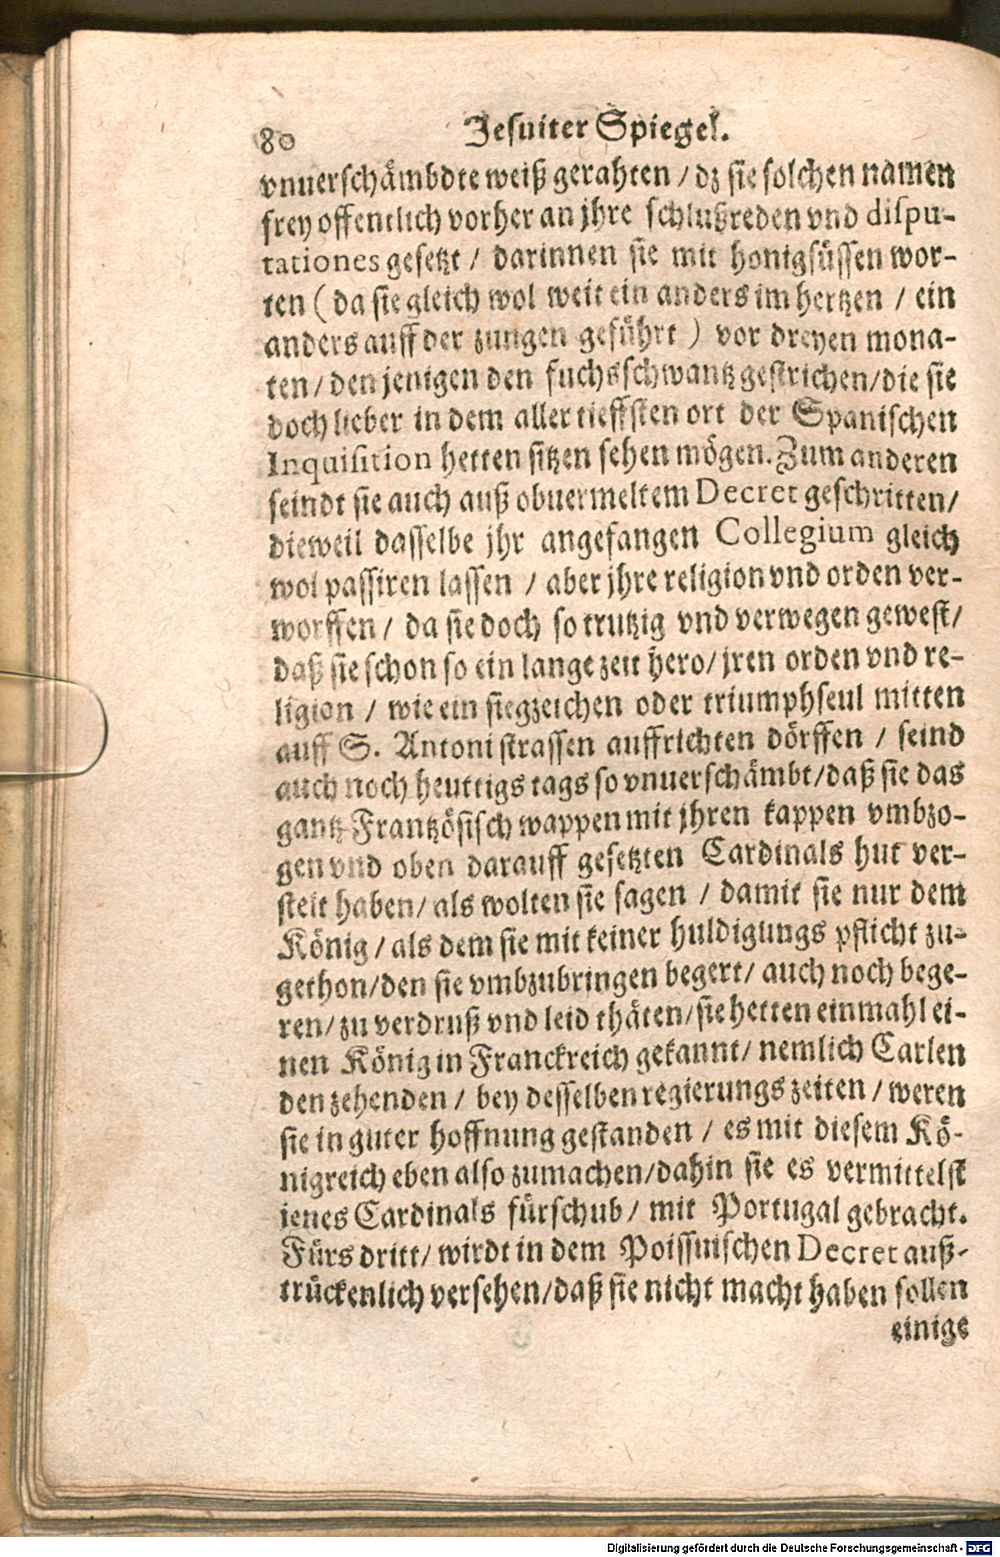 80 Jesuiter Spiegel.
vnuerschämbdte weiß gerahten / dz sie solchen namen
frey offentlich vorher an jhre schlußreden vnd dispu-
tationes gesetzt / darinnen sie mit honigsüssen wor-
ten ( da sie gleich wol weit ein anders im hertzen / ein
anders auff der zungen geführt ) vor dreyen mona-
ten / den jenigen den fuchsschwantz gestrichen / die sie
doch lieber in dem aller tieffsten ort der Spanischen
Inquisition hetten sitzen sehen mögen. Zum anderen
seindt sie auch auß obuermeltem Decret geschritten /
dieweil dasselbe jhr angefangen Collegium gleich
wol passiren lassen / aber jhre religion vnd orden ver-
worffen / da sie doch so trutzig vnd verwegen gewest /
daß sie schon so ein lange zeit hero / jren orden vnd re-
ligion / wie ein siegzeichen oder triumphseul mitten
auff S. Antoni strassen auffrichten dörffen / seind
auch noch heuttigs tags so vnuerschämbt / daß sie das
gantz Frantzösisch wappen mit jhren kappen vmbzo-
gen vnd oben darauff gesetzten Cardinals hut ver-
stelt haben / als wolten sie sagen / damit sie nur dem
König / als dem sie mit keiner huldigungs pflicht zu-
gethon / den sie vmbzubringen begert / auch noch bege-
ren / zu verdruß vnd leid thäten / sie hetten einmahl ei-
nen König in Franckreich gekannt / nemlich Carlen
den zehenden / bey desselben regierungs zeiten / weren
sie in guter hoffnung gestanden / es mit diesem Kö-
nigreich eben also zumachen / dahin sie es vermittelst
jenes Cardinals fürschub / mit Portugal gebracht.
Fürs dritt / wirdt in dem Poissnischen Decret auß-
trückenlich versehen / daß sie nicht macht haben sollen
einige
Digitalisierung gefördert durch die Deutsche Forschungsgemeinschaft - DFG